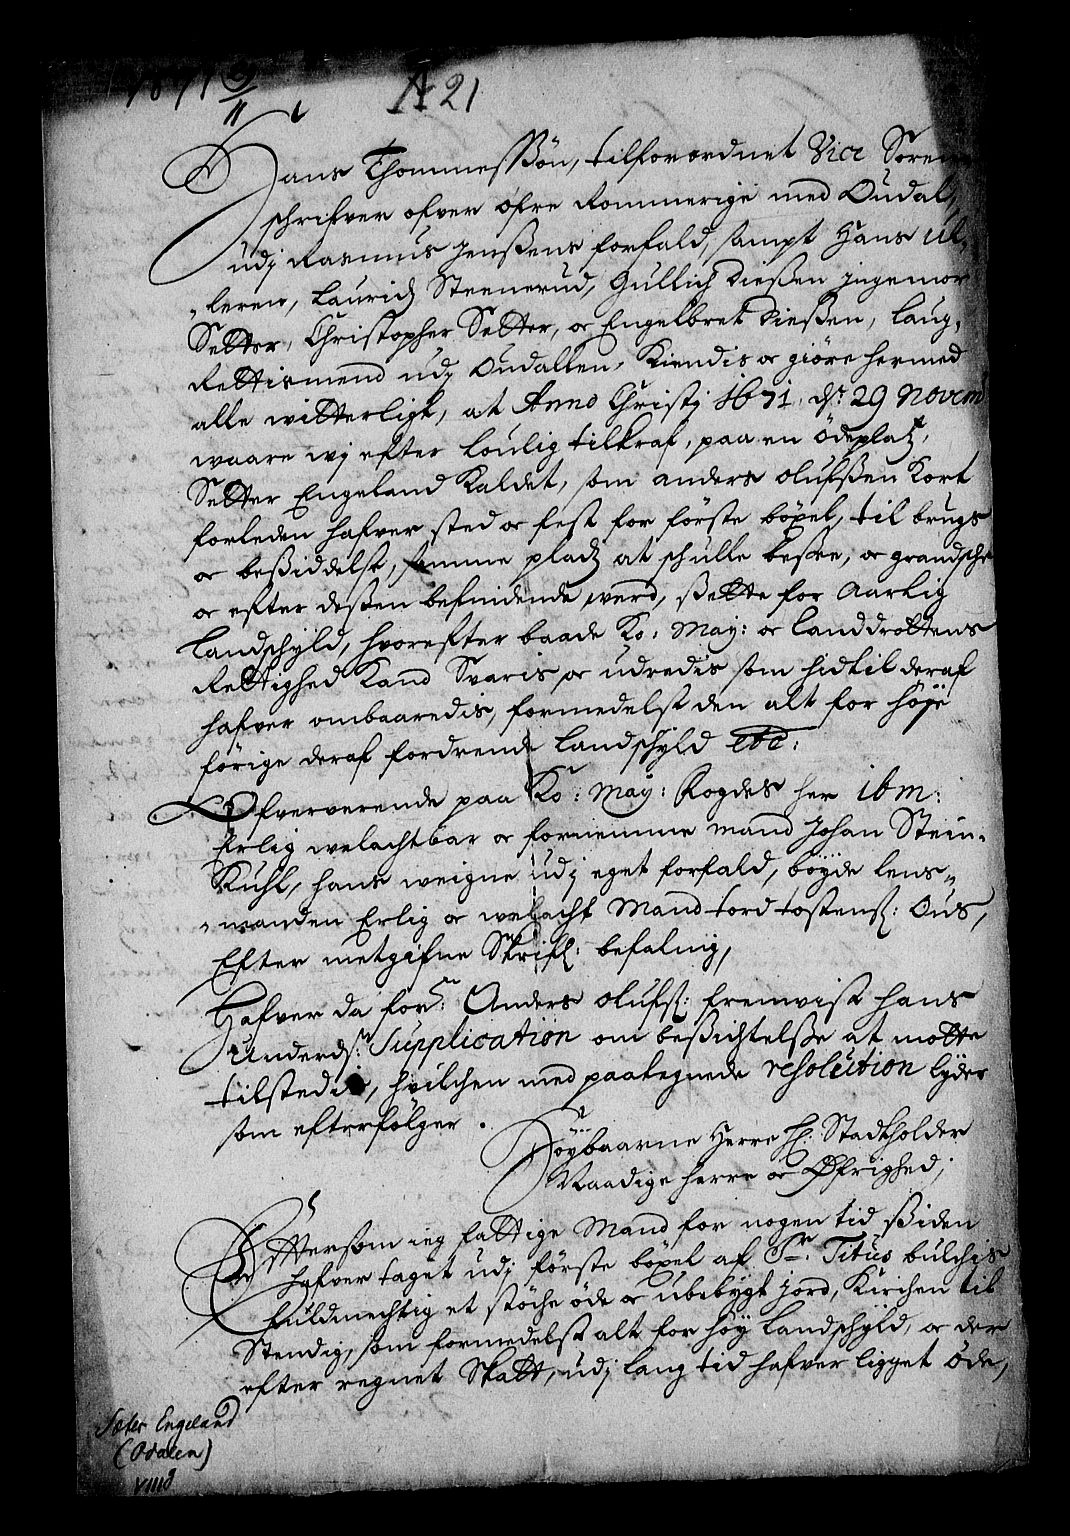 1671 29/11
A 21
Hans Thommesßön, tilforordnet Vice Soren
schrifver ofver öfre Rommerige med Oudal,
udj Rasmus Jenßens forfald, sampt Hans Ul,
leren, Lauridz Steenerud, Gullich Dießen Jngemor
Setter, Christopher Setter, oc Engelbret Dießen, Laug,
Rettismend udj Oudallen, Kiendis oc giöre hermed
alle witterligt, at Anno Christj 1671, ds: 29 Novemb
waare wj efter louligtilkraf, paa en ödeplatz,
Setter Engeland Kaldet, som anders olufsßen Kort
forleden hafver sted oc fest for förste böxel, til brugs
oc beßiddelse, samme pladz at schulle beßee, oc grandsche
oc efter deßen befindende werd, ßette for Aarlig
Landschyld, hvorefter baade Ko: May: oc landdrottens
Rettighed Kand Svaris, oc udredis som hidtil deraf
hafver ombaaredis, formedelst den alt for höje
förige deraf fordrende Landschyld etc:
Ofververende paa Ko: May: Fogdes her ibm:
Erlig welachtbar oc fornemme mand Johan Stein-
Kuhl, hans weigne udj eget forfald, böyde lens-
manden Erlig oc welacht Mand tord tostens: Ous,
Efter metgifne Skrifl: befaling,
Hafver da for:ne Anders olufs: fremvist hans
Underd: Supplication om beßichtelße at motte
tilstedis, hvilchen med paategnede resolution lyder
som efterfölger.
Höybaarne Herre H: Stadtholder
Naadige herre oc Öfrighed;
Eftersom ieg fattige Mand for nogen tid ßiden
hafver taget udj förste böxel af Sr. Titus bulchis
fuldmechtig et stöche öde oc ubebygt jord, Kirchen til
Stendig, som formedelst alt for höy Landschyld, oc der
efter regnet Skatt, udj lang tid hafver ligget öde,
Sæter Engeland
(Odalen)
VIIII